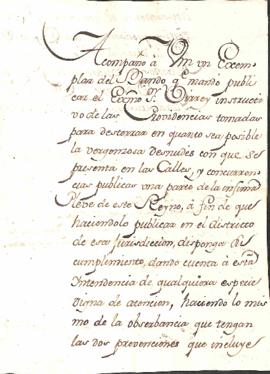 Acompaño à Vm un Exem-
plar del Bando, qe mandó publi-
car el Exmo Sr. Virrey instructi-
vo de las Providencias tomadas
para desterrar en quanto sea posible
la vergonzosa desnudes con que se
presenta en las Calles, y concurren-
cias publicas una parte de la infima
Plebe de este Reyno, à fin de que
haciendolo publicar en el districto
de esa Jurisdiccion, disponga su
cumplimiento, dando cuenta à esta
Intendencia de qualquiera especie
digna de atencion, haciendo lo mis-
mo de la observancia que tengan
las dos prevenciones que incluye